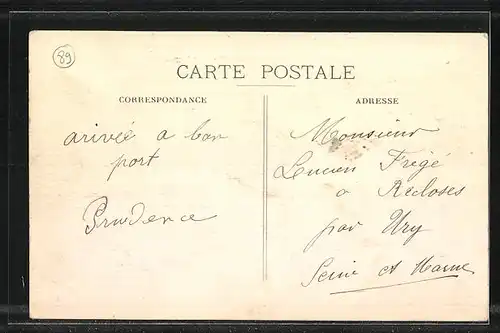 89
CARTE POSTALE
CORRESPONDANCE
arivée a bon
port
Prudence
ADRESSE
Monsieur
Lucien Frégé
a Récloses
par Ury
Seine et Marne